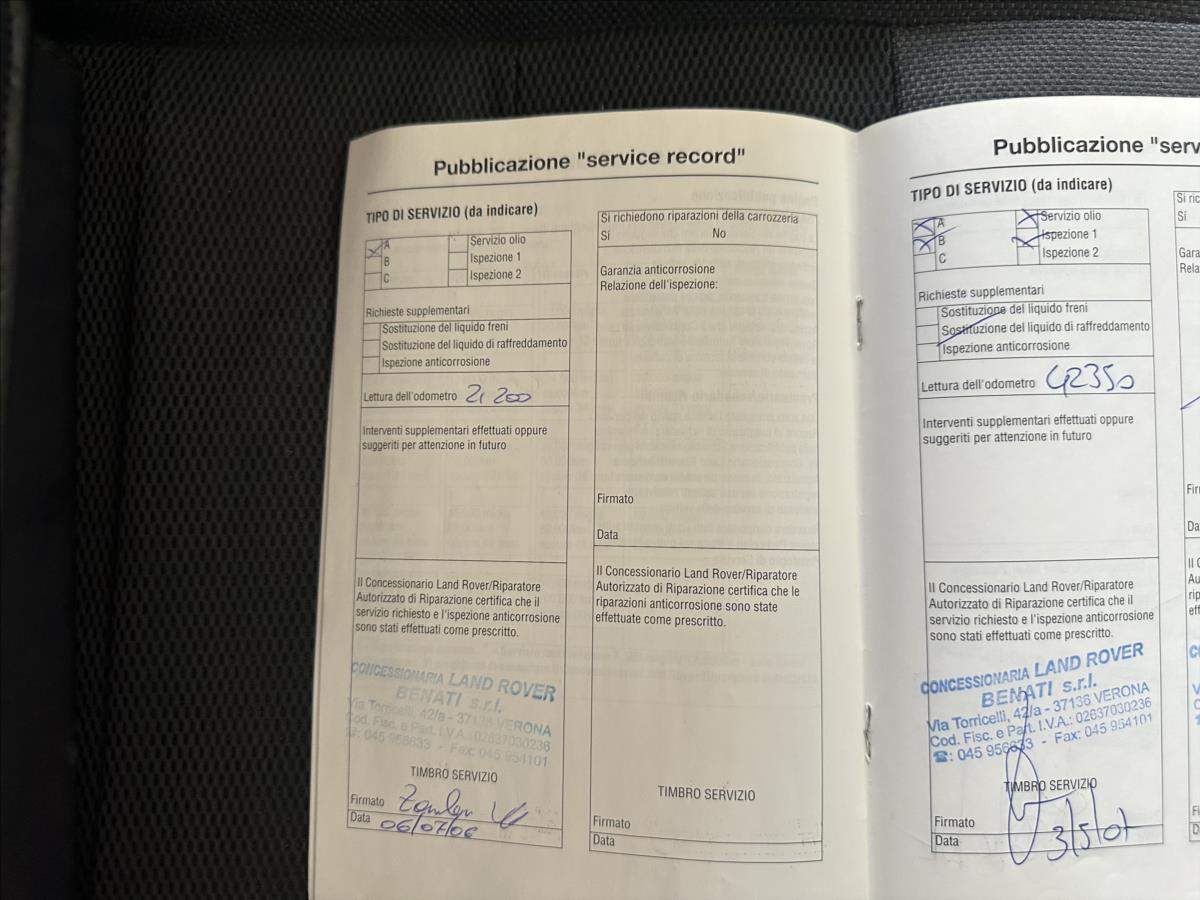 Pubblicazione "service record"
TIPO DI SERVIZIO (da indicare)
A
B
C
Servizio olio
Ispezione 1
Ispezione 2
Richieste supplementari
Sostituzione del liquido freni
Sostituzione del liquido di raffreddamento
Ispezione anticorrosione
Lettura dell'odometro 21 200
Interventi supplementari effettuati oppure
suggeriti per attenzione in futuro
Il Concessionario Land Rover/Riparatore
Autorizzato di Riparazione certifica che il
servizio richiesto e l'ispezione anticorrosione
sono stati effettuati come prescritto.
CONCESSIONARIA LAND ROVER
BENATI s.r.l.
Via Torricelli, 42/a - 37136 VERONA
Cod. Fisc. e Part. I.V.A.: 02637030236
☎: 045 956633 - Fax: 045 954101
TIMBRO SERVIZIO
Firmato
Data 06/07/06
Si richiedono riparazioni della carrozzeria
Sí No
Garanzia anticorrosione
Relazione dell'ispezione:
Firmato
Data
Il Concessionario Land Rover/Riparatore
Autorizzato di Riparazione certifica che le
riparazioni anticorrosione sono state
effettuate come prescritto.
TIMBRO SERVIZIO
Firmato
Data
Pubblicazione "serv
TIPO DI SERVIZIO (da indicare)
A
B
C
Servizio olio
Ispezione 1
Ispezione 2
Richieste supplementari
Sostituzione del liquido freni
Sostituzione del liquido di raffreddamento
Ispezione anticorrosione
Lettura dell'odometro 42350
Interventi supplementari effettuati oppure
suggeriti per attenzione in futuro
Il Concessionario Land Rover/Riparatore
Autorizzato di Riparazione certifica che il
servizio richiesto e l'ispezione anticorrosione
sono stati effettuati come prescritto.
CONCESSIONARIA LAND ROVER
BENATI s.r.l.
Via Torricelli, 42/a - 37136 VERONA
Cod. Fisc. e Part. I.V.A.: 02637030236
☎: 045 956633 - Fax: 045 954101
TIMBRO SERVIZIO
Firmato
Data 3/5/07
Si ric
Sí
Gara
Rela